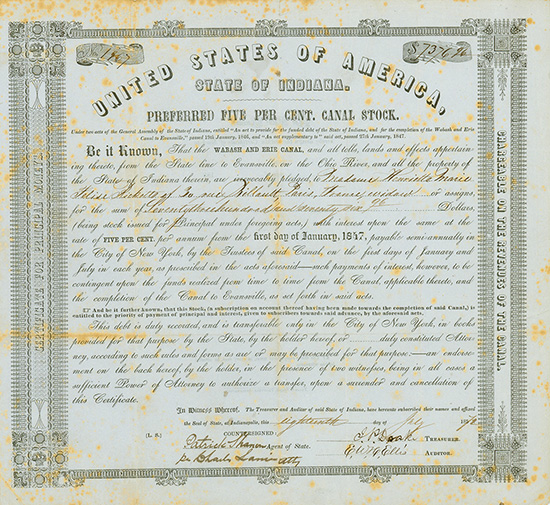 UNITED STATES OF AMERICA,
STATE OF INDIANA.
PREFERRED FIVE PER CENT. CANAL STOCK.
Under two acts of the General Assembly of the State of Indiana, entitled "An act to provide for the funded debt of the State of Indiana, and for the completion of the Wabash and Erie
Canal to Evansville," passed 19th January, 1846, and "An act supplementary to" said act, passed 27th January, 1847.
Be it Known, That the WABASH AND ERIE CANAL, and all tolls, lands and effects appertain-
ing thereto, from the State line to Evansville, on the Ohio River, and all the property of
the State of Indiana therein, are irrevocably pledged, to Madame Henriette Marie
Elise Ricketts of 30 rue Paris, or assigns,
for the sum of Seventy three hundred and seventy six Dollars,
(being stock issued for Principal under foregoing acts,) with interest upon the same at the
rate of FIVE PER CENT. per annum from the first day of January, 1847, payable semi-annually in
the City of New York, by the Trustees of said Canal, on the first days of January and
July in each year, as prescribed in the acts aforesaid—such payments of interest, however, to be
contingent upon the funds realized from time to time from the Canal, applicable thereto, and
the completion of the Canal to Evansville, as set forth in said acts.
And be it farther known, that this Stock, (a subscription on account thereof having been made towards the completion of said Canal,) is
entitled to the priority of payment of principal and interest, given to subscribers towards said advance, by the aforesaid acts.
This debt is duly recorded, and is transferable only in the City of New York, in books
provided for that purpose by the State, by the holder hereof, or duly constituted Attor-
ney, according to such rules and forms as are or may be prescribed for that purpose:—an endorse-
ment on the back hereof, by the holder, in the presence of two witnesses, being in all cases a
sufficient Power of Attorney to authorize a transfer, upon a surrender and cancellation of
this Certificate.
In Witness Whereof, The Treasurer and Auditor of said State of Indiana, have hereunto subscribed their names and affixed
the Seal of State, at Indianapolis, this eighteenth day of July
COUNTERSIGNED
(L. S.) Agent of State. TREASURER.
E. W. H. Ellis AUDITOR.
pr Charles atty
CERTIFICATE FOR PRINCIPAL MOIETY.
CHARGEABLE ON THE REVENUES OF THE CANAL.